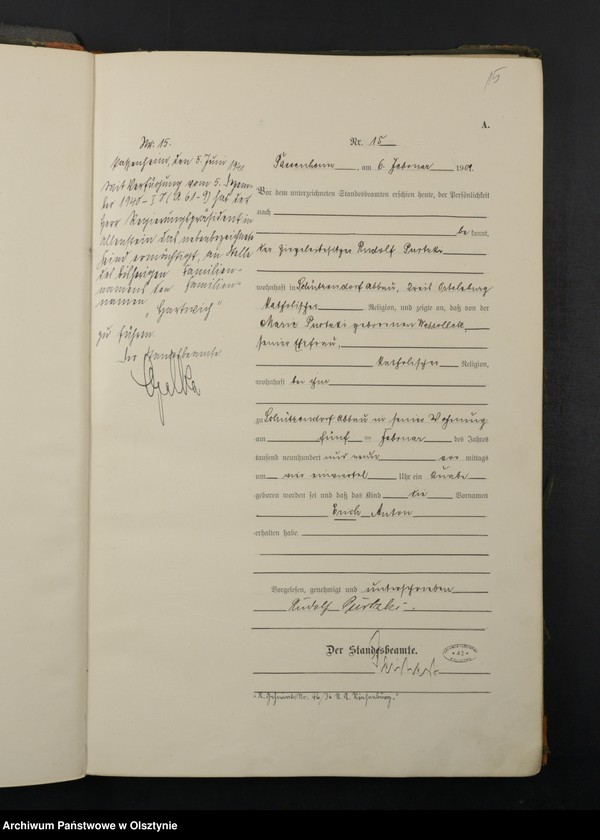 15
A.
Nr. 15.
Passenheim, den 5. Juni 1941
Mit Verfügung vom 5. Dezem-
ber 1940 - I 7 (A 61-9) hat der
Herr Regierungspräsident in
Allenstein das nebenbezeichnete
Kind ermächtigt, an Stelle
des bisherigen Familien-
namens den Familien-
namen
"Hartwich"
zu führen.
Der Standesbeamte
Nr. 15
Passenheim, am 6. Februar 1909.
Vor dem unterzeichneten Standesbeamten erschien heute, der Persönlichkeit
nach
be kannt,
der Ziegeleibesitzer Rudolf Purtzki
wohnhaft in Schützendorf Abbau, Kreis Ortelsburg
katholischer Religion, und zeigte an, daß von der
Marie Purtzki geborenen
seiner Ehefrau,
katholischer Religion,
wohnhaft bei ihm
zu Schützendorf Abbau in seiner Wohnung
am fünf ten Februar des Jahres
tausend neunhundert und neun vor mittags
um einviertel Uhr ein Knabe
geboren worden sei und daß das Kind die Vornamen
Erich Anton
erhalten habe.
Vorgelesen, genehmigt und unterschrieben
Rudolf Purtzki.
Der Standesbeamte.
Archiwum Państwowe w Olsztynie